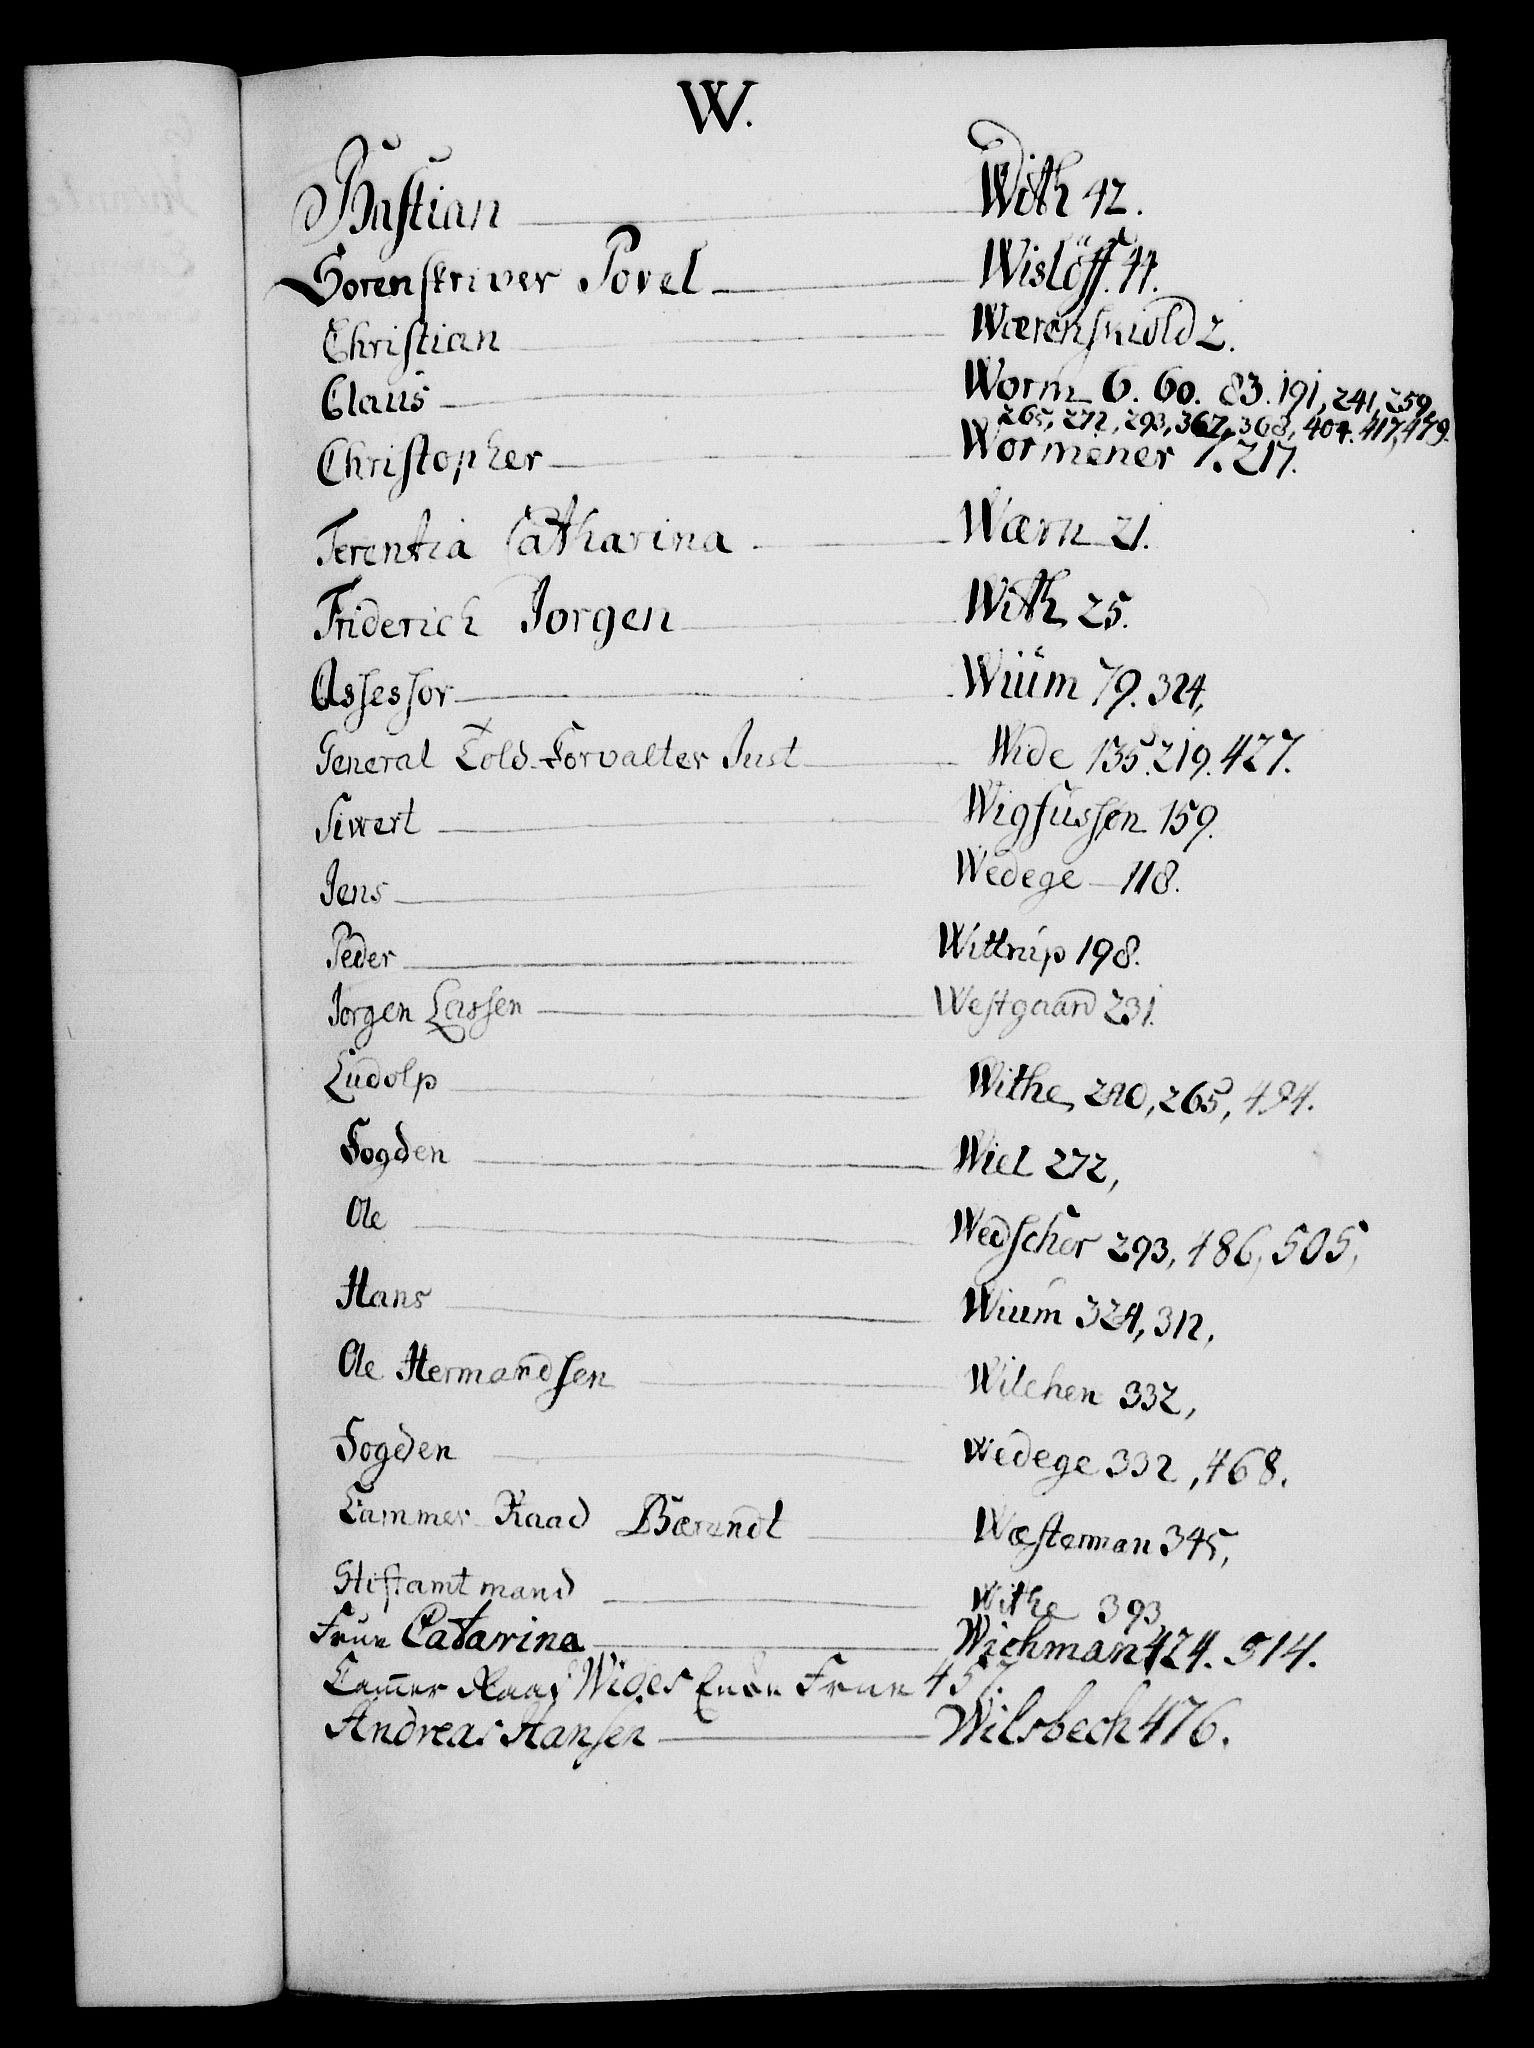 W.
Bastian — With 42.
Sorenskriver Povel — Wislöff. 44.
Christian — Wærenskiold 2.
Claus — Worm 6. 60. 83. 191, 241, 259,
265, 272, 293, 367, 368, 404. 417, 479.
Christopher — Wormener 7. 217.
Terentia Catharina — Wærn 21.
Friderich Jorgen — With 25.
Assessor — Wiüm 79. 324,
General Told-Forvalter Just — Wide 135. 219. 427.
Siwert — Wigfussen 159.
Jens — Wedege 118.
Peder — Wittrup 198.
Jorgen Lassen — Westgaard 231.
Ludolp — Withe, 240, 265, 494.
Fogden — Wiel 272,
Ole — Wedscher 293, 486, 505,
Hans — Wium 324, 312,
Ole Hermandsen — Wilchen 332,
Fogden — Wedege 332, 468.
Cammer Raad Bærendt — Wæsterman 345,
Stiftamtmand — Withe 393,
Frue Catarina — Wichman 424. 514.
Cam̄er Raad Wides Enke Frue 457.
Andreas Hansen — Wilsbech 476.